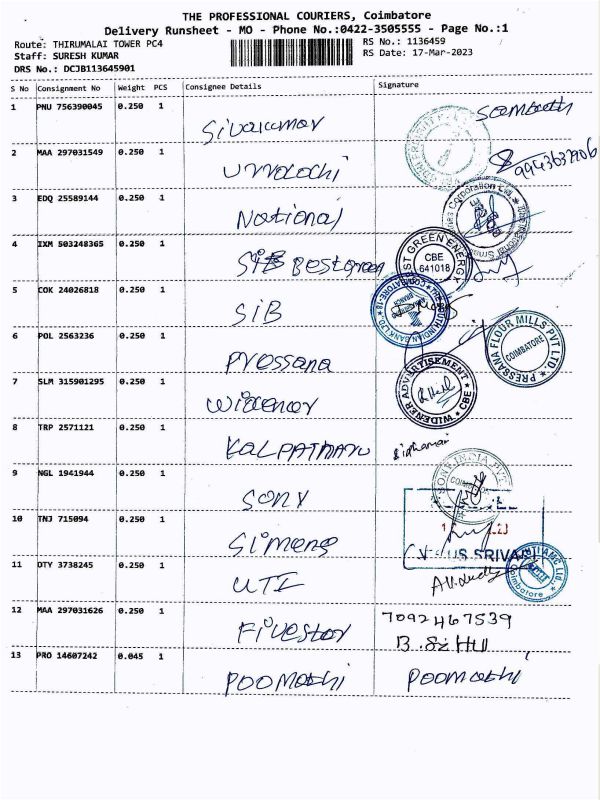 THE PROFESSIONAL COURIERS, Coimbatore
Delivery Runsheet - MO - Phone No.:0422-3505555 - Page No.:1
Route: THIRUMALAI TOWER PC4 RS No.: 1136459
Staff: SURESH KUMAR RS Date: 17-Mar-2023
DRS No.: DCJB113645901
S No Consignment No Weight PCS Consignee Details Signature
1 PNU 756390045 0.250 1 Sivakumar Sampath
2 MAA 297031549 0.250 1
9943637906
3 EDQ 25589144 0.250 1 National
4 IXM 503248365 0.250 1 Bestgreen
BEST GREEN ENERGY
CBE
641018
5 COK 24026818 0.250 1 SIB
THE SOUTH INDIAN BANK LTD.
COIMBATORE-18
6 POL 2563236 0.250 1 Pressana
PRESSANA FLOUR MILLS PVT LTD.
COIMBATORE
7 SLM 315901295 0.250 1 Widener
WIDENER ADVERTISEMENT
CBE
8 TRP 2571121 0.250 1 KALPATHARU
9 NGL 1941944 0.250 1 Sony
SONY INDIA PVT
10 TNJ 715094 0.250 1 Simens
11 OTY 3738245 0.250 1 UTI
Coimbatore
12 MAA 297031626 0.250 1 Fivestar 7092467539
13 PRO 14607242 0.045 1 Poomathi Poomathi